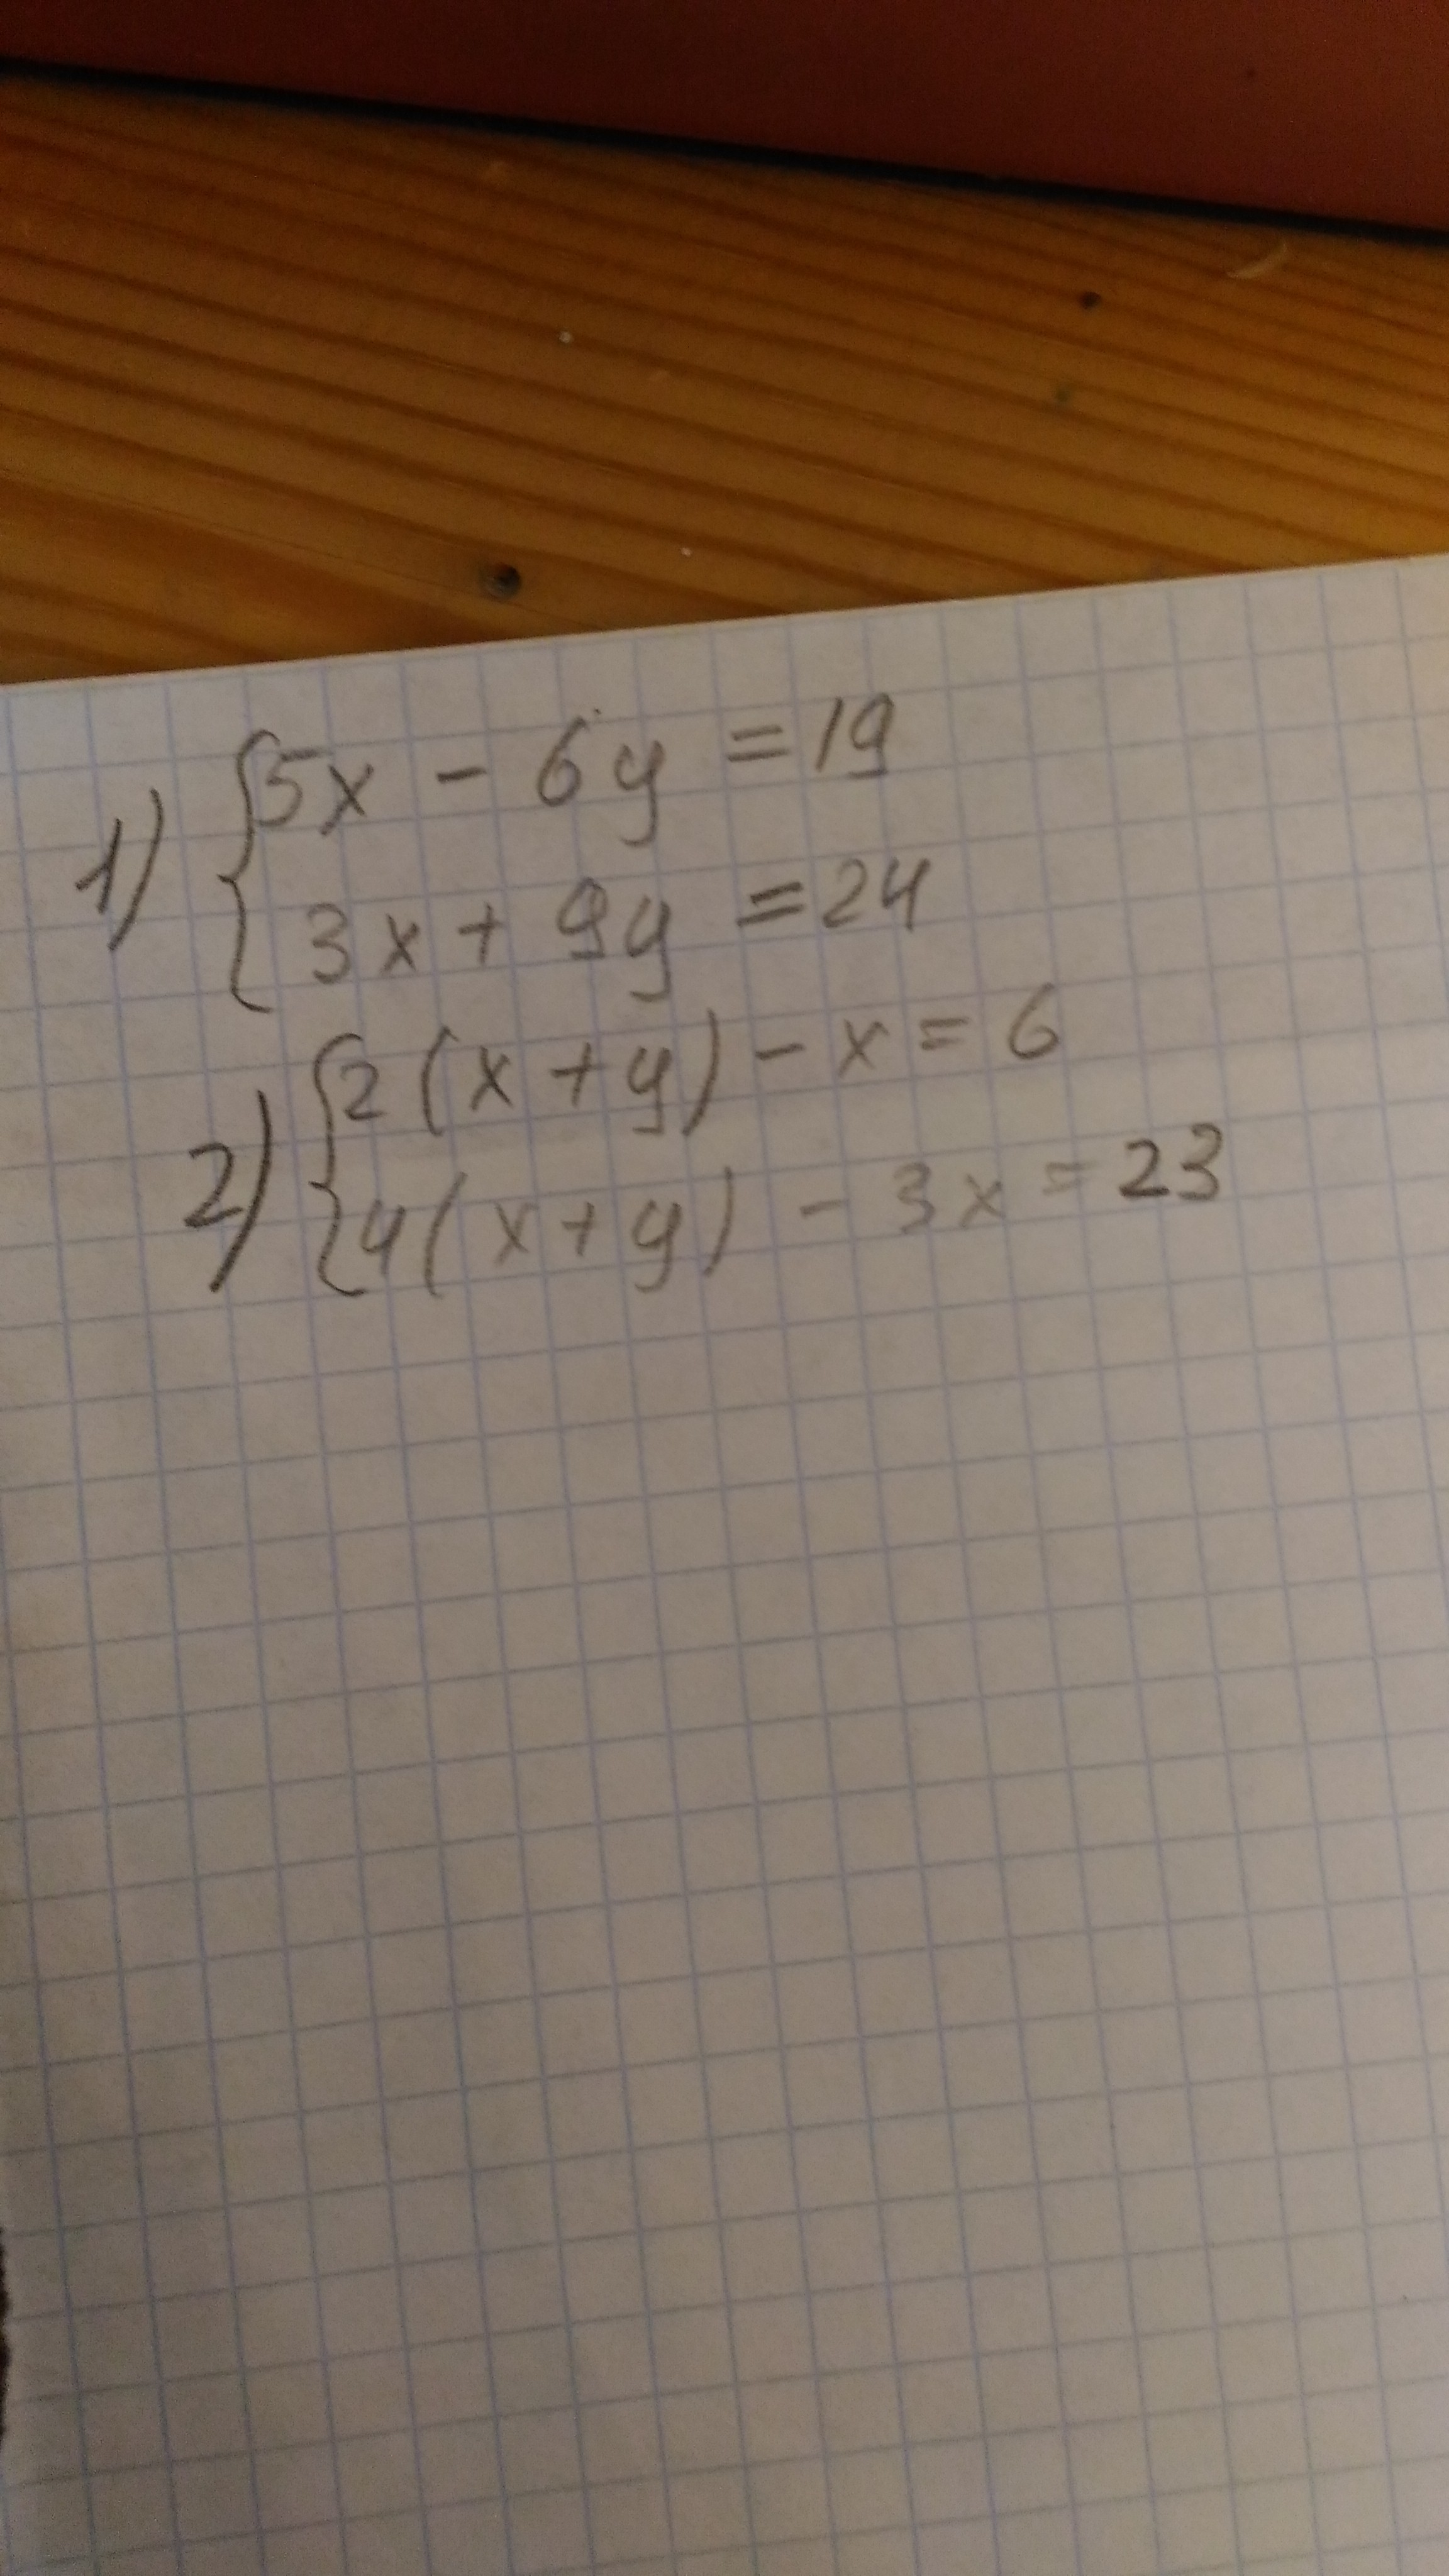 1) {5x - 6y = 19
3x + 9y = 24
2) {2(x+y) - x = 6
4(x+y) - 3x = 23